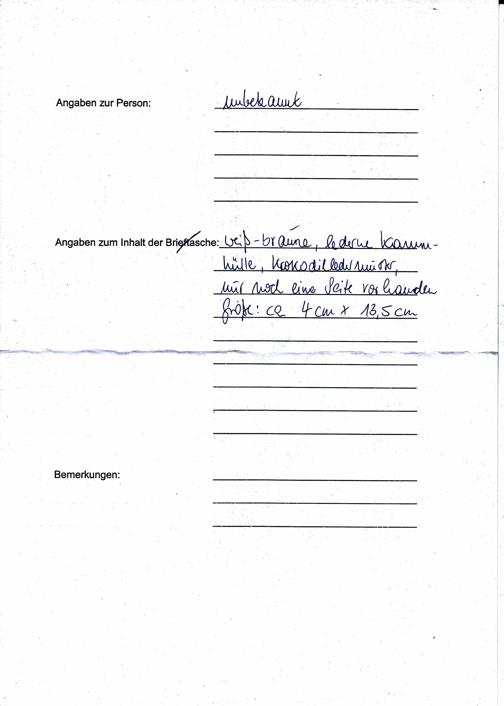 Angaben zur Person: unbekannt
Angaben zum Inhalt der Brieftasche: weiß-braune, lederne Kamm-
hülle, Krokodilledermuster,
nur noch eine Seite vorhanden
Größe: ca 4 cm x 13,5 cm
Bemerkungen: